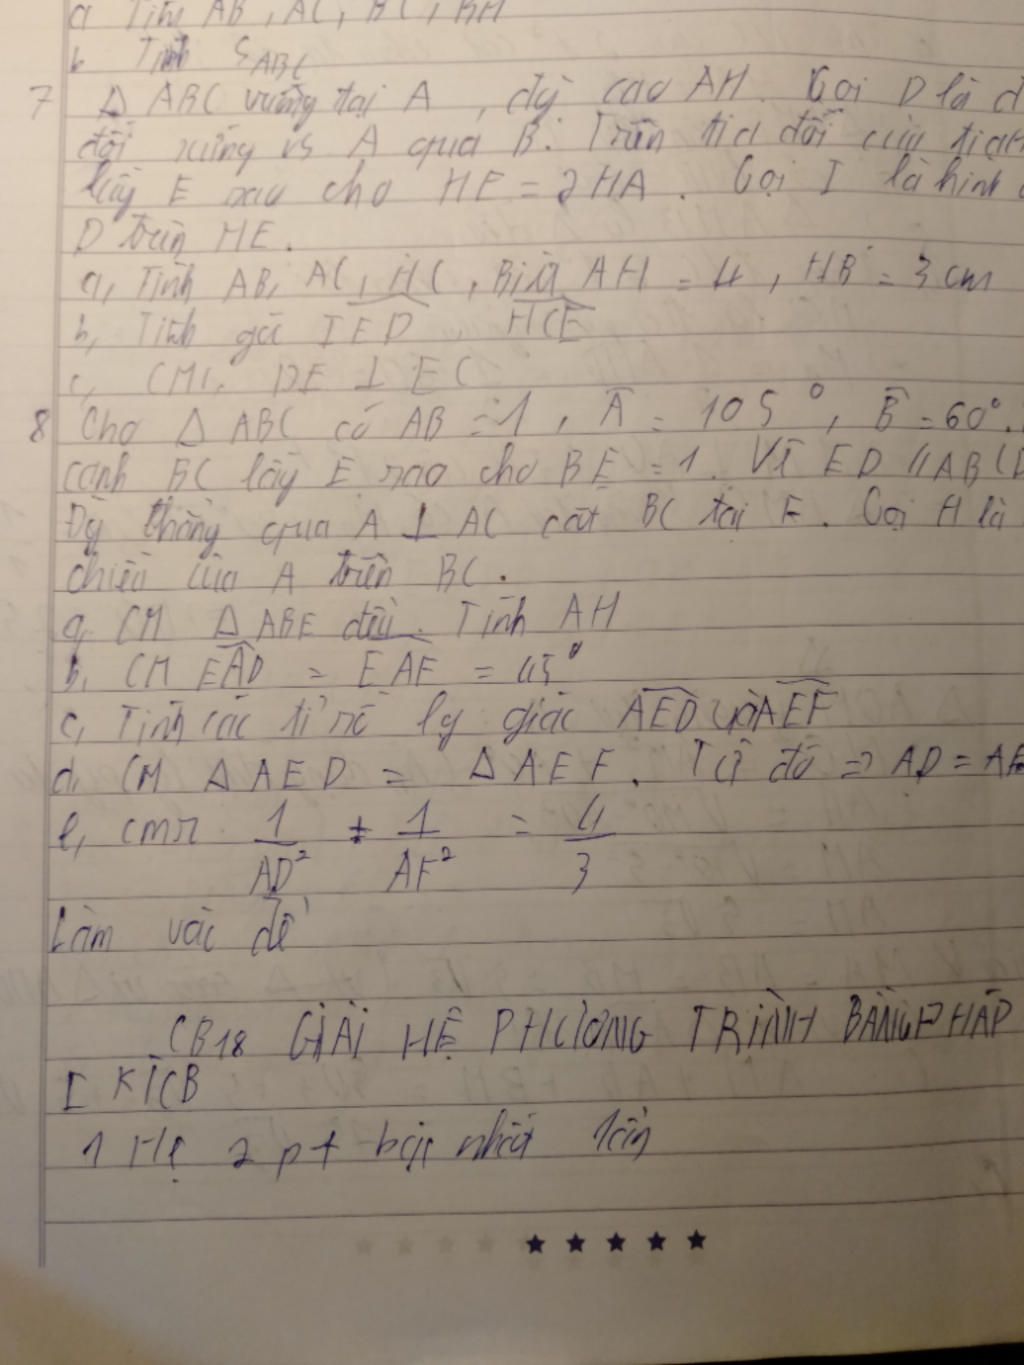 a Tính AB, AC, BC, BH
b Tính S ABC
7 Δ ABC vuông tại A, đg cao AH. Gọi D là đ
đối xứng vs A qua B. Trên tia đối của tia
lấy E sao cho HE = 2HA. Gọi I là hình
D trên HE.
a, Tính AB, AC, HC, Biết AH = 4, HB = 3 cm
b, Tính góc IED, HCE
c, CM, DE ⊥ EC
8 Cho Δ ABC có AB = 1, A = 105°, B = 60°.
cạnh BC lấy E sao cho BE = 1. Vẽ ED // AB (D
Đg thẳng qua A ⊥ AC cắt BC tại F. Gọi H là
chiếu của A trên BC.
a. CM Δ ABE đều. Tính AH
b. CM EAD = EAF = 45°
c, Tính các tỉ số lg giác AED và AEF
d. CM Δ AED = Δ AEF. Từ đó => AD = AF
e, cmr 1/AD² + 1/AF² = 4/3
Làm các đề
CB18 GIẢI HỆ PHƯƠNG TRÌNH BẰNG PHÁP
I KTCB
1 Hệ 2 pt bậc nhất 1ẩn